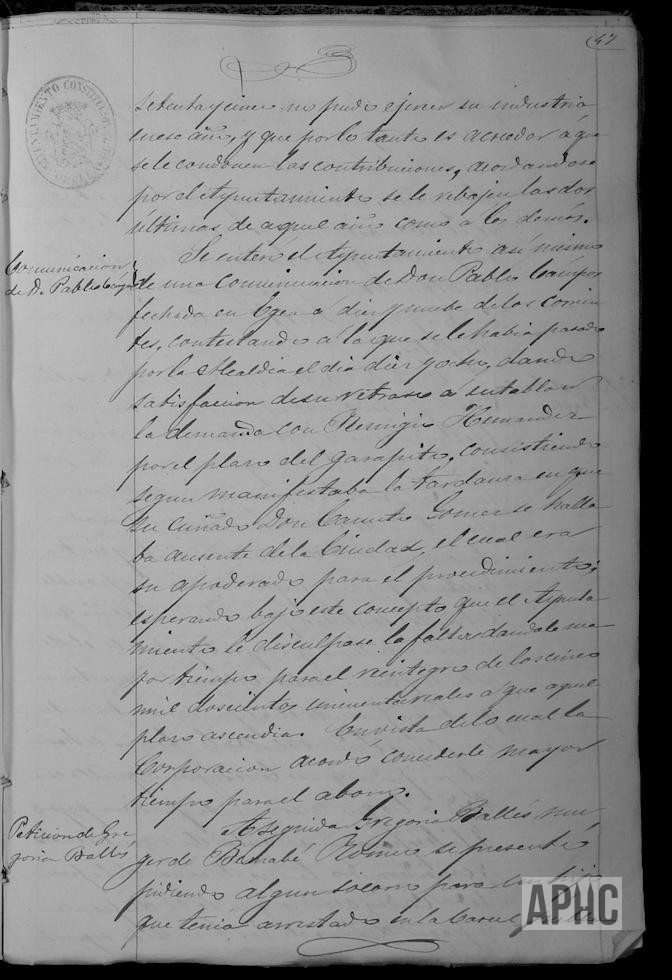 47
AYUNTAMIENTO CONSTITUCIONAL
setenta y cinco no pudo ejercer su industria
en ese año, y que por lo tanto es acreedor á que
se le condonen las contribuciones, acordandose
por el Ayuntamiento se le rebajen las dos
últimas de aquel año como a los demás.
Comunicacion
de D. Pablo Campos
Se enteró el Ayuntamiento asi mismo
de una comunicacion de Don Pablo Campos
fechada en Egea á diez y nueve de los corrien
tes, contestando á la que se le habia pasado
por la Alcaldia el dia diez y ocho, dando
satisfaccion de su retraso á entablar
la demanda con Remigio Hernandez
por el plazo del Garapito, consistiendo
segun manifestaba la tardanza en que
su cuñado Don Canuto Gomez se halla
ba ausente de la Ciudad, el cual era
su apoderado para el procedimiento;
esperando bajo este concepto que el Ayunta
miento le disculpase la falta dandole ma
yor tiempo para el reintegro de los cinco
mil doscientos cincuenta reales a que aquel
plazo ascendia. En vista de lo cual la
Corporacion acordó concederle mayor
tiempo para el abono.
Peticion de Gre
goria Ballés
A seguida Gregoria Ballés mu
ger de Bernabé Romeo se presentó
pidiendo algun socorro para un hijo
que tenia arrestado en la Carcel
APHC